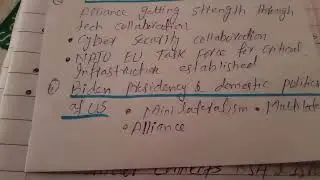 Alliance getting strength through
tech collaboration
• Cyber Security collaboration
• NATO EU Task Force for Critical
Infrastructure established
Biden Presidency & domestic politics
of US • Minilateralism •
• Alliance